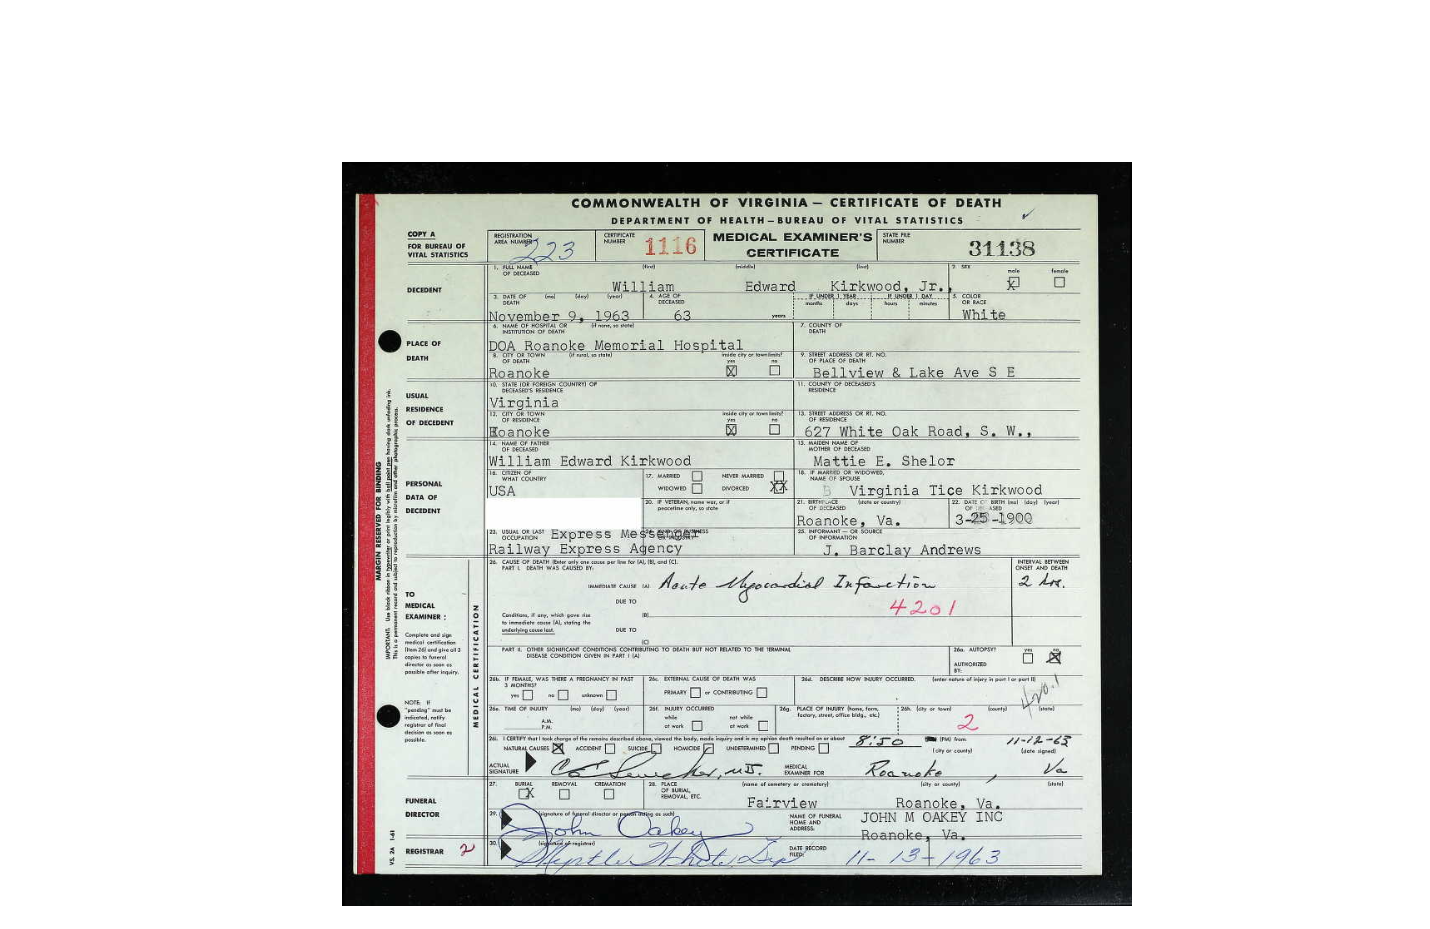 COMMONWEALTH OF VIRGINIA — CERTIFICATE OF DEATH
DEPARTMENT OF HEALTH — BUREAU OF VITAL STATISTICS
COPY A
FOR BUREAU OF
VITAL STATISTICS
REGISTRATION
AREA NUMBER 223
CERTIFICATE
NUMBER 1116
MEDICAL EXAMINER'S
CERTIFICATE
STATE FILE
NUMBER 31138
DECEDENT
1. FULL NAME (first) (middle) (last)
OF DECEASED
William Edward Kirkwood, Jr.,
2. SEX male X female
3. DATE OF (mo) (day) (year)
DEATH
November 9, 1963
4. AGE OF
DECEASED
63 years
IF UNDER 1 YEAR IF UNDER 1 DAY
months days hours minutes
5. COLOR
OR RACE
White
PLACE OF
DEATH
6. NAME OF HOSPITAL OR (if none, so state)
INSTITUTION OF DEATH
DOA Roanoke Memorial Hospital
7. COUNTY OF
DEATH
8. CITY OR TOWN (if rural, so state) inside city or town limits?
OF DEATH yes no
Roanoke X
9. STREET ADDRESS OR RT. NO.
OF PLACE OF DEATH
Bellview & Lake Ave S E
USUAL
RESIDENCE
OF DECEDENT
10. STATE (OR FOREIGN COUNTRY) OF
DECEASED'S RESIDENCE
Virginia
11. COUNTY OF DECEASED'S
RESIDENCE
12. CITY OR TOWN inside city or town limits?
OF RESIDENCE yes no
Roanoke X
13. STREET ADDRESS OR RT. NO.
OF RESIDENCE
627 White Oak Road, S. W.,
PERSONAL
DATA OF
DECEDENT
14. NAME OF FATHER
OF DECEASED
William Edward Kirkwood
15. MAIDEN NAME OF
MOTHER OF DECEASED
Mattie E. Shelor
16. CITIZEN OF
WHAT COUNTRY
USA
17. MARRIED NEVER MARRIED
WIDOWED DIVORCED XX
18. IF MARRIED OR WIDOWED,
NAME OF SPOUSE
Virginia Tice Kirkwood
20. IF VETERAN, name war, or if
peacetime only, so state
21. BIRTHPLACE (state or country)
OF DECEASED
Roanoke, Va.
22. DATE OF BIRTH (mo) (day) (year)
OF DECEASED
3-25-1900
23. USUAL OR LAST
OCCUPATION
Express Messenger
Railway Express Agency
25. INFORMANT — OR SOURCE
OF INFORMATION
J. Barclay Andrews
MARGIN RESERVED FOR BINDING
TO
MEDICAL
EXAMINER:
Complete and sign
medical certification
(Item 26) and give all 3
copies to funeral
director as soon as
possible after inquiry.
NOTE: If
"pending" must be
indicated, notify
registrar of final
decision as soon as
possible.
MEDICAL CERTIFICATION
26. CAUSE OF DEATH (Enter only one cause per line for (A), (B), and (C).
PART I. DEATH WAS CAUSED BY:
IMMEDIATE CAUSE (A) Acute Myocardial Infarction
INTERVAL BETWEEN
ONSET AND DEATH
2 hrs.
DUE TO 4201
Conditions, if any, which gave rise
to immediate cause (A), stating the
underlying cause last.
(B)
DUE TO
(C)
PART II. OTHER SIGNIFICANT CONDITIONS CONTRIBUTING TO DEATH BUT NOT RELATED TO THE TERMINAL
DISEASE CONDITION GIVEN IN PART I (A)
26a. AUTOPSY? yes no X
AUTHORIZED
BY:
26b. IF FEMALE, WAS THERE A PREGNANCY IN PAST
3 MONTHS?
yes no unknown
26c. EXTERNAL CAUSE OF DEATH WAS
PRIMARY or CONTRIBUTING
26d. DESCRIBE HOW INJURY OCCURRED. (enter nature of injury in part I or part II)
420.1
26e. TIME OF INJURY (mo) (day) (year)
A.M.
P.M.
26f. INJURY OCCURRED
while not while
at work at work
26g. PLACE OF INJURY (home, farm,
factory, street, office bldg., etc.)
26h. (city or town) (county) (state)
2
26i. I CERTIFY that I took charge of the remains described above, viewed the body, made inquiry and in my opinion death resulted on or about 8:50 (PM) from 11-12-63
NATURAL CAUSES X ACCIDENT SUICIDE HOMICIDE UNDETERMINED PENDING (city or county) (date signed)
ACTUAL
SIGNATURE
MEDICAL
EXAMINER FOR Roanoke, Va
(city or county) (state)
FUNERAL
DIRECTOR
27. BURIAL REMOVAL CREMATION
X
28. PLACE (name of cemetery or crematory) (city or county) (state)
OF BURIAL,
REMOVAL, ETC.
Fairview Roanoke, Va.
29. (signature of funeral director or person acting as such)
John Oakey
NAME OF FUNERAL
HOME AND
ADDRESS:
JOHN M OAKEY INC
Roanoke, Va.
REGISTRAR 2
30. (signature of registrar)
DATE RECORD
FILED: 11-13-1963
VS. 2A 1-61